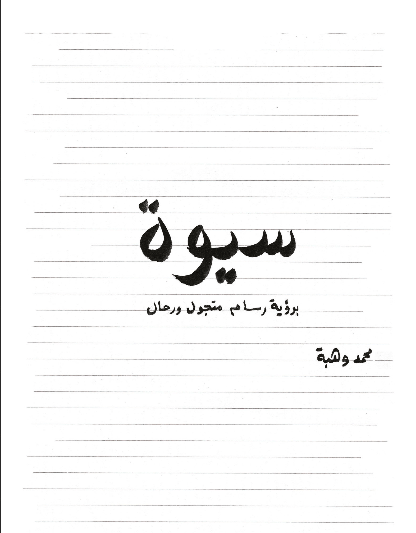 سيوة
برؤية رسام متجول ورحال
محمد وهبة